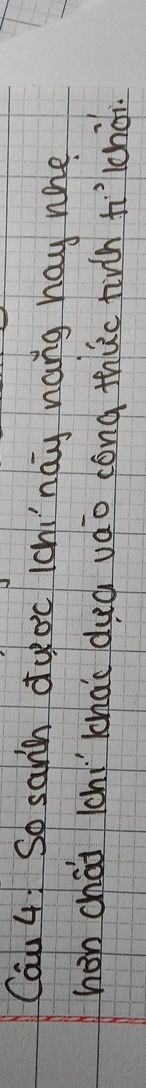 Câu 4: So sánh được khí này nặng hay nhẹ
hơn chất khí khác dựa vào công thức tính tỉ khối.